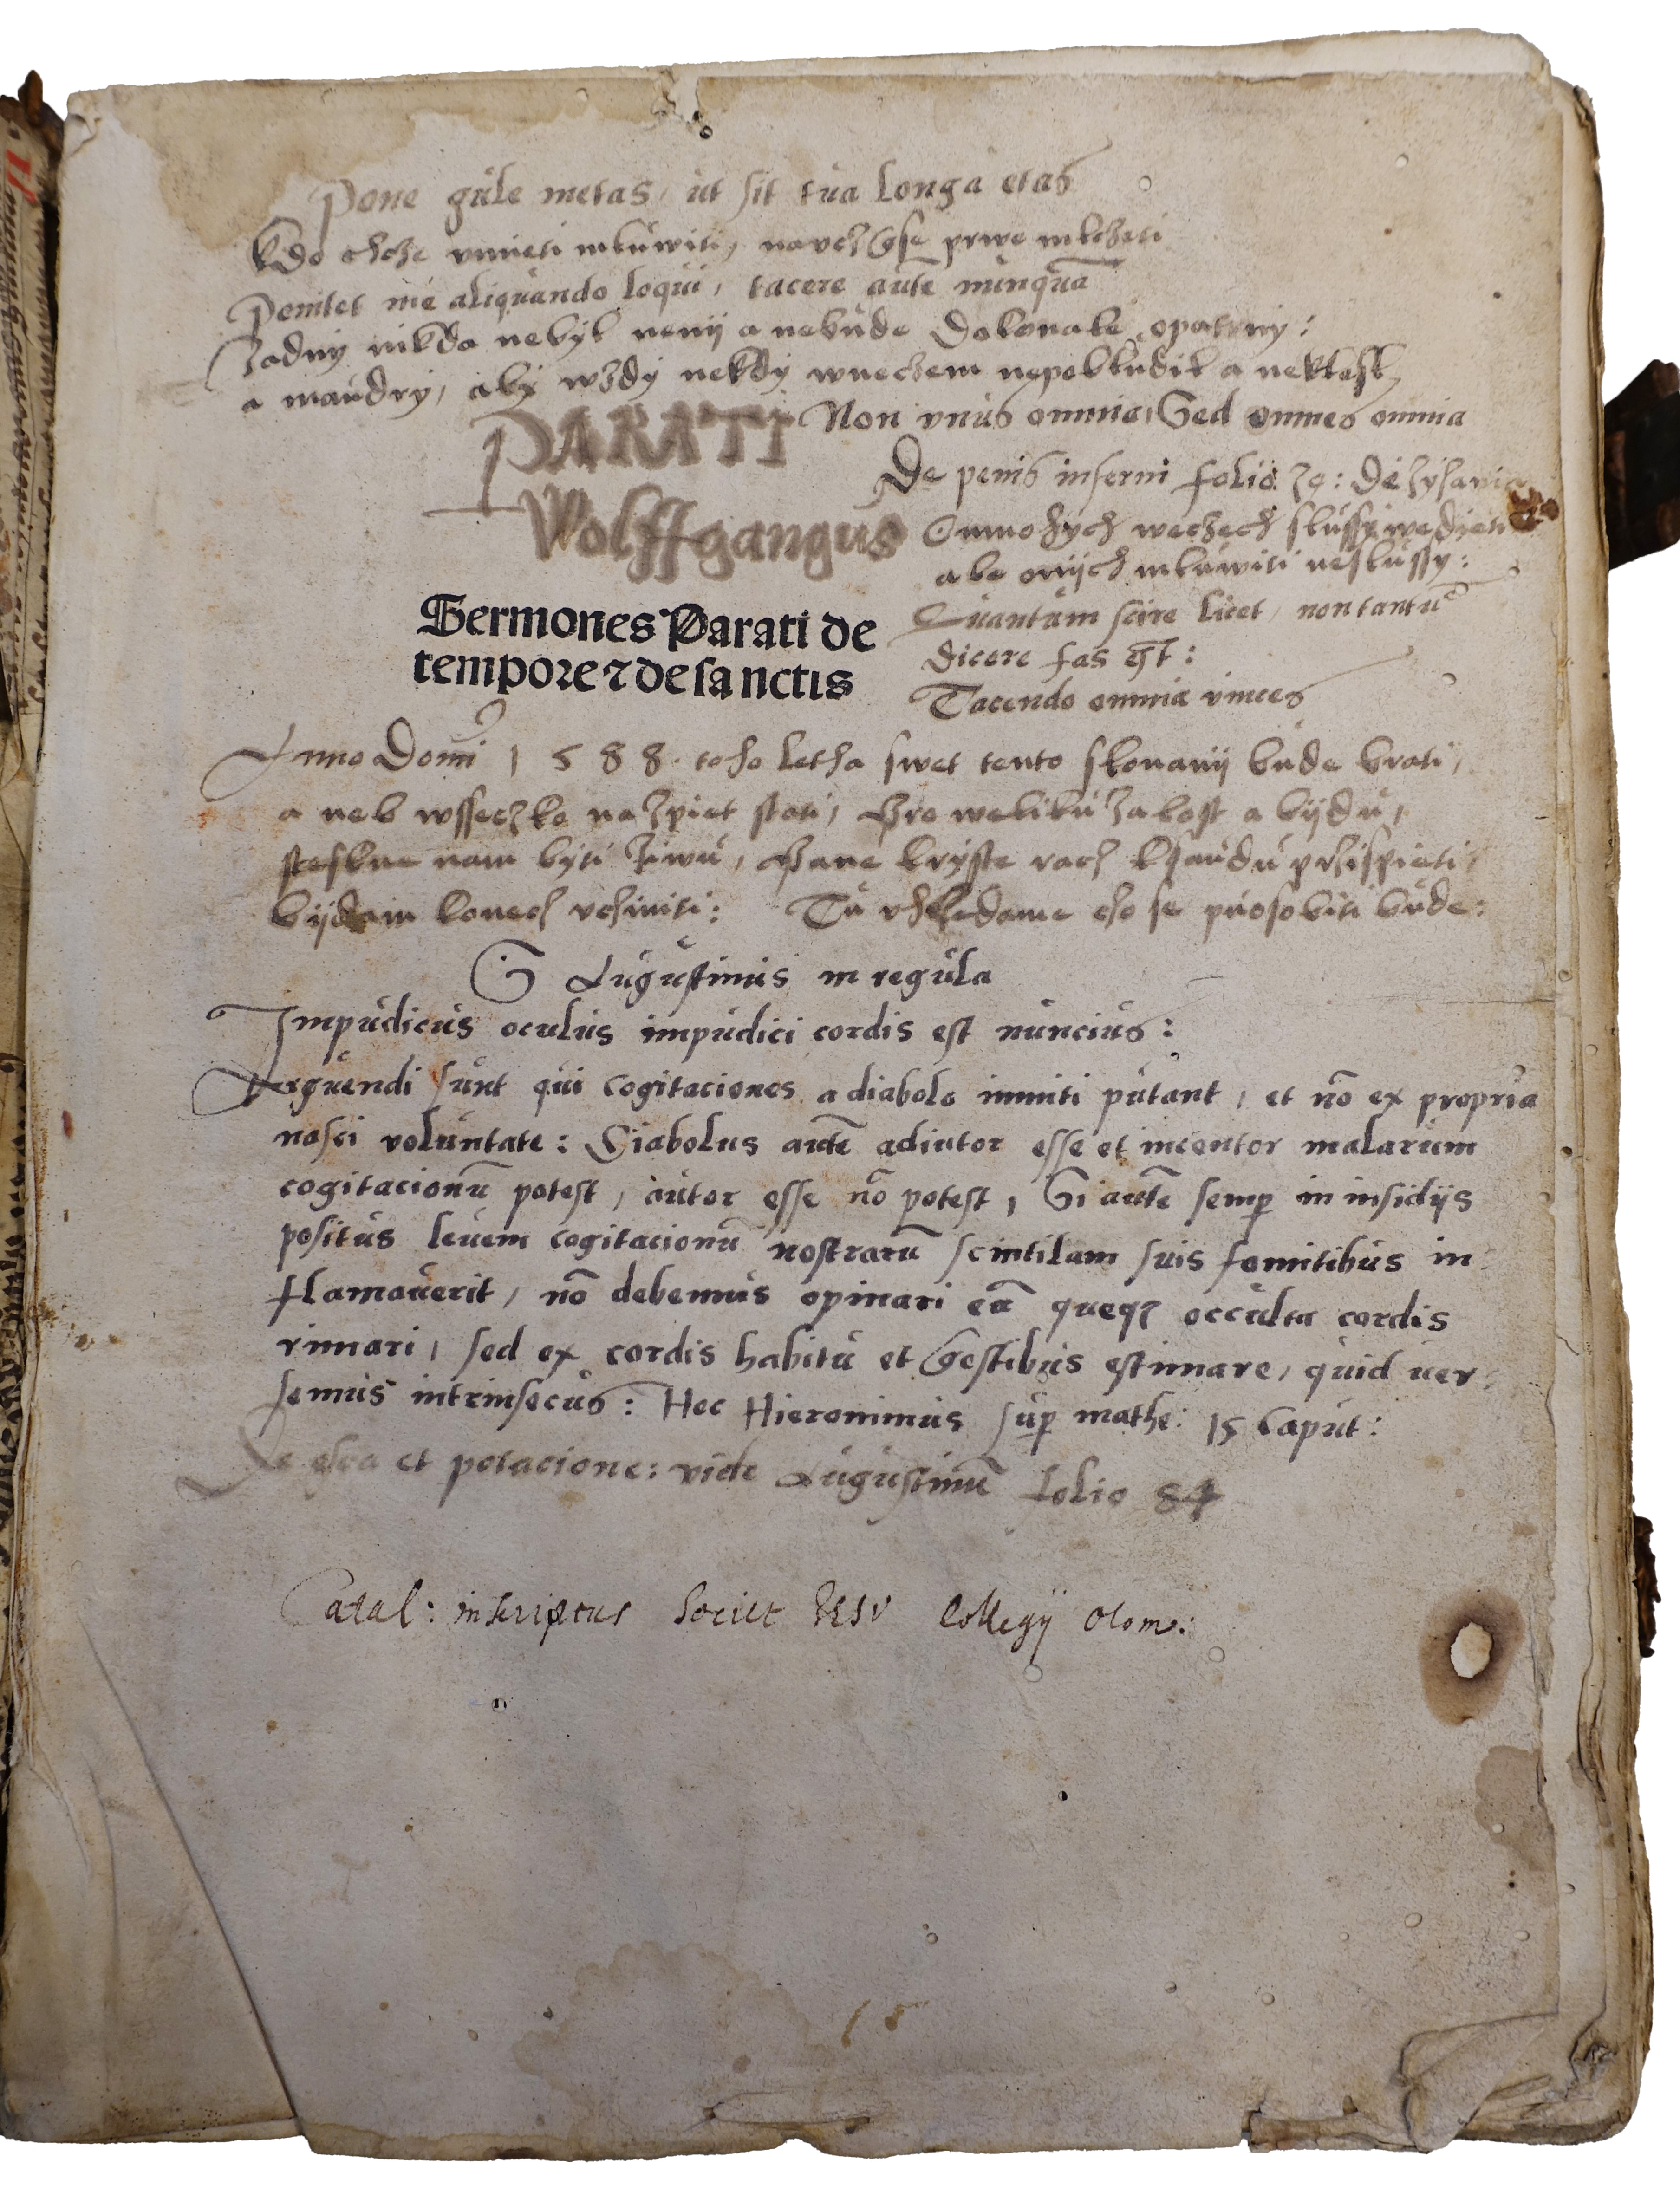 Pone gule metas, ut sit tua longa etas
kdo chcze vmieti mluwiti, naucz gse prwe mlczeti
Penitet me aliquando loqui, tacere aute nunqua
Zadny nikda nebyl nenij a nebude dokonale opatrny:
a maudry, aby wzdy nekdy wneczem nepobludil a neklesl
PARATI
Non vnus omnia, Sed omnes omnia
Wolffgangus
De penis inferni folio
O mnohych weczech slussy wedieti
ale onijch mluwiti neslussy:
Quantum scire licet, non tantu
dicere fas est:
Tacendo omnia vinces
Sermones Parati de
tempore ⁊ de sanctis
Anno Domi 1588. toho letha swet tento skonanij bude brati,
a neb wsseczko nazpiet stati, Pro weliku zalost a bijdu,
steskne nam byti ziwu, Pane kryste racz ksaudu przispieti,
bijdam konecz vcziniti: Tu vhledame cho se puosobiti bude:
S Augustinus in regula
Impudicus oculus impudici cordis est nuncius:
Arguendi sunt qui cogitaciones a diabolo immiti putant, et nō ex propria
nasci voluntate: Diabolus autē adiutor esse et incentor malarum
cogitacionū potest, autor esse nō potest, Si autē semp in insidijs
positus leuem cogitacionū nostrarū scintilam suis fomitibus in
flamauerit, nō debemus opinari eū queqz occulta cordis
rimari, sed ex cordis habitu et Gestibus estimare, quid uer
semus intrinsecus: Hec Hieronimus sup mathe: 15 Caput:
De esca et potacione: vide Augustinū folio 84
Catal: inscriptus Societ IESV Collegij Olom: